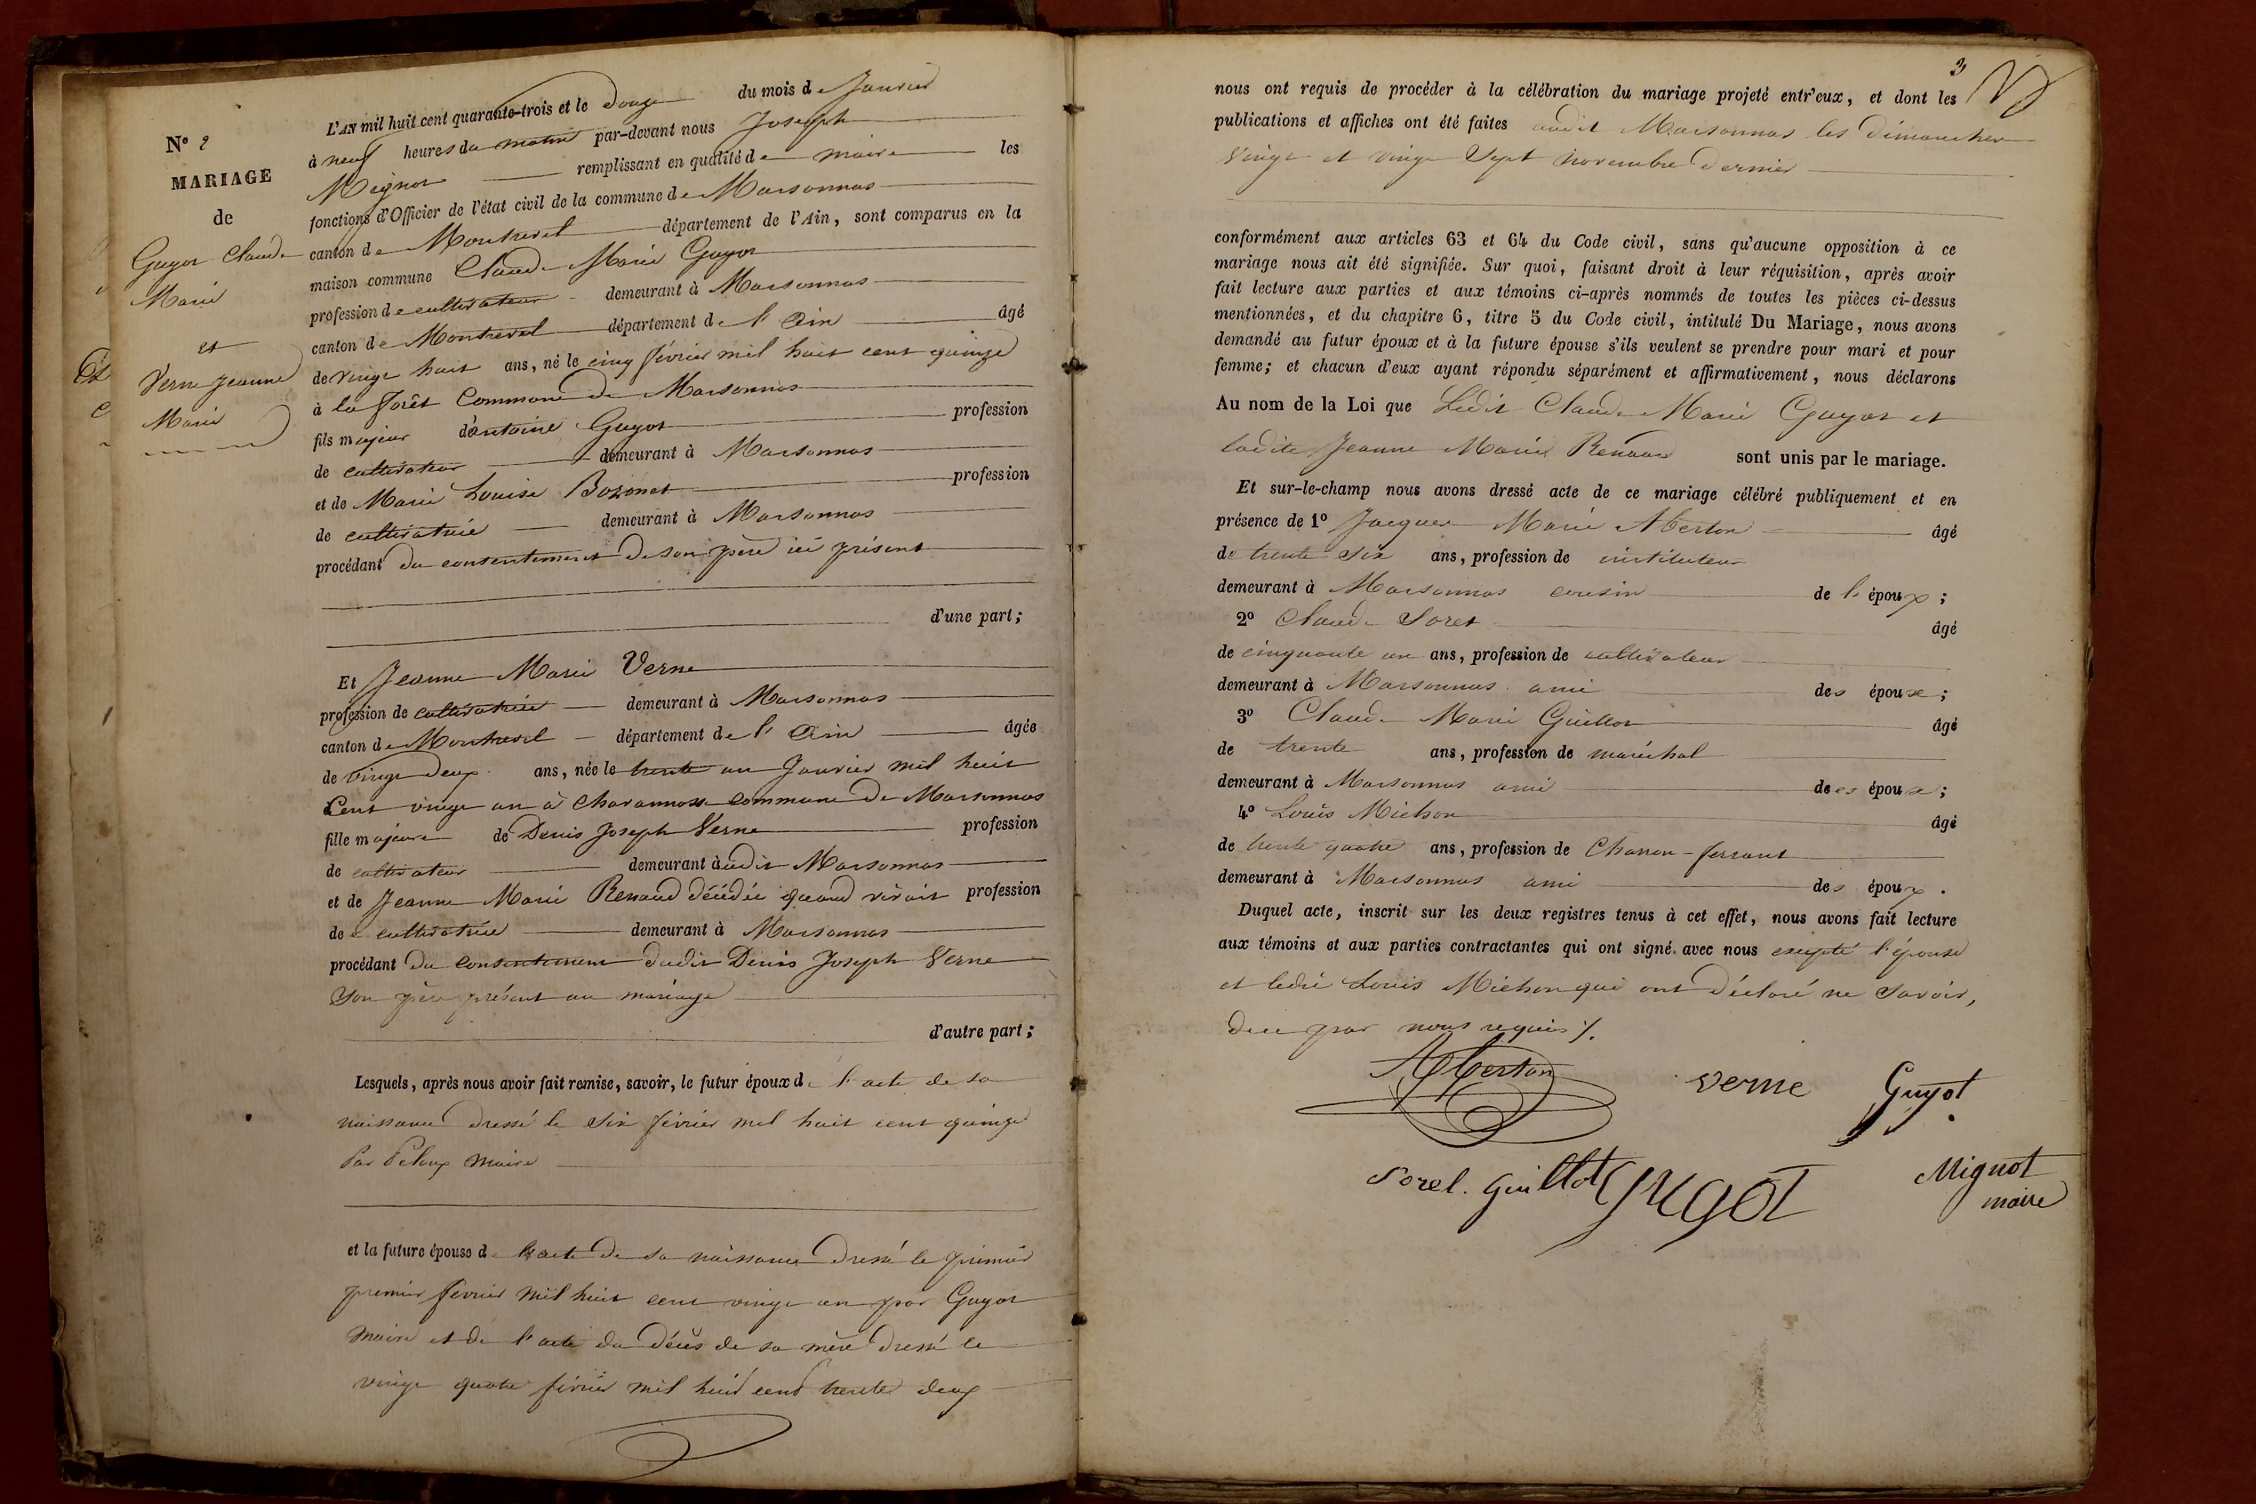 N° 2
MARIAGE
de
Guyot Claude
Marie
et
Verne Jeanne
Marie
L'AN mil huit cent quarante-trois et le douze du mois de Janvier
à neuf heures du matin par-devant nous Joseph
Mignot remplissant en qualité de maire les
fonctions d'Officier de l'état civil de la commune de Marsonnas
canton de Montrevel département de l'Ain, sont comparus en la
maison commune Claude Marie Guyot
profession de cultivateur demeurant à Marsonnas
canton de Montrevel département de l'Ain âgé
de vingt huit ans, né le cinq février mil huit cent quinze
à la forêt Commune de Marsonnas
fils majeur d'antoine Guyot profession
de cultivateur demeurant à Marsonnas
et de Marie Louise Bozonet profession
de cultivatrice demeurant à Marsonnas
procédant du consentement de son père ici présent
d'une part;
Et Jeanne Marie Verne
profession de cultivatrice demeurant à Marsonnas
canton de Montrevel département de l'Ain âgée
de vingt deux ans, née le trente un Janvier mil huit
Cent vingt un à Charannoss commune de Marsonnas
fille majeure de Denis Joseph Verne profession
de cultivateur demeurant àudit Marsonnas
et de Jeanne Marie Renaud décédée quand vivait profession
de cultivatrice demeurant à Marsonnas
procédant du consentement dudit Denis Joseph Verne
Son père présent au mariage
d'autre part;
Lesquels, après nous avoir fait remise, savoir, le futur époux de l'acte de sa
naissance dressé le Six février mil huit cent quinze
Par Peloux Maire
et la future épouse de l'acte de sa naissance dressé le premier
premier février mil huit cent vingt un par Guyot
Maire et de l'acte du décès de sa mère dressé le
vingt quatre février mil huit cent trente deux
3
nous ont requis de procéder à la célébration du mariage projeté entr'eux, et dont les
publications et affiches ont été faites audit Marsonnas les dimanches
vingt et vingt Sept novembre dernier
conformément aux articles 63 et 64 du Code civil, sans qu'aucune opposition à ce
mariage nous ait été signifiée. Sur quoi, faisant droit à leur réquisition, après avoir
fait lecture aux parties et aux témoins ci-après nommés de toutes les pièces ci-dessus
mentionnées, et du chapitre 6, titre 5 du Code civil, intitulé Du Mariage, nous avons
demandé au futur époux et à la future épouse s'ils veulent se prendre pour mari et pour
femme; et chacun d'eux ayant répondu séparément et affirmativement, nous déclarons
Au nom de la Loi que Ledit Claude Marie Guyot et
ladite Jeanne Marie Renaud sont unis par le mariage.
Et sur-le-champ nous avons dressé acte de ce mariage célébré publiquement et en
présence de 1° Jacques Marie Aberton âgé
de trente Six ans, profession de instituteur
demeurant à Marsonnas cousin de l'époux;
2° Claude Sorel âgé
de cinquante un ans, profession de cultivateur
demeurant à Marsonnas ami des époux;
3° Claude Marie Guillot âgé
de trente ans, profession de maréchal
demeurant à Marsonnas ami des époux;
4° Louis Michon âgé
de trente quatre ans, profession de Charron-ferrant
demeurant à Marsonnas ami des époux.
Duquel acte, inscrit sur les deux registres tenus à cet effet, nous avons fait lecture
aux témoins et aux parties contractantes qui ont signé avec nous excepté l'épouse
et ledit Louis Michon qui ont déclaré ne Savoir,
de ce par nous requis /.
Aberton
verne
Guyot
Sorel. Guillot Guyot
Mignot
maire